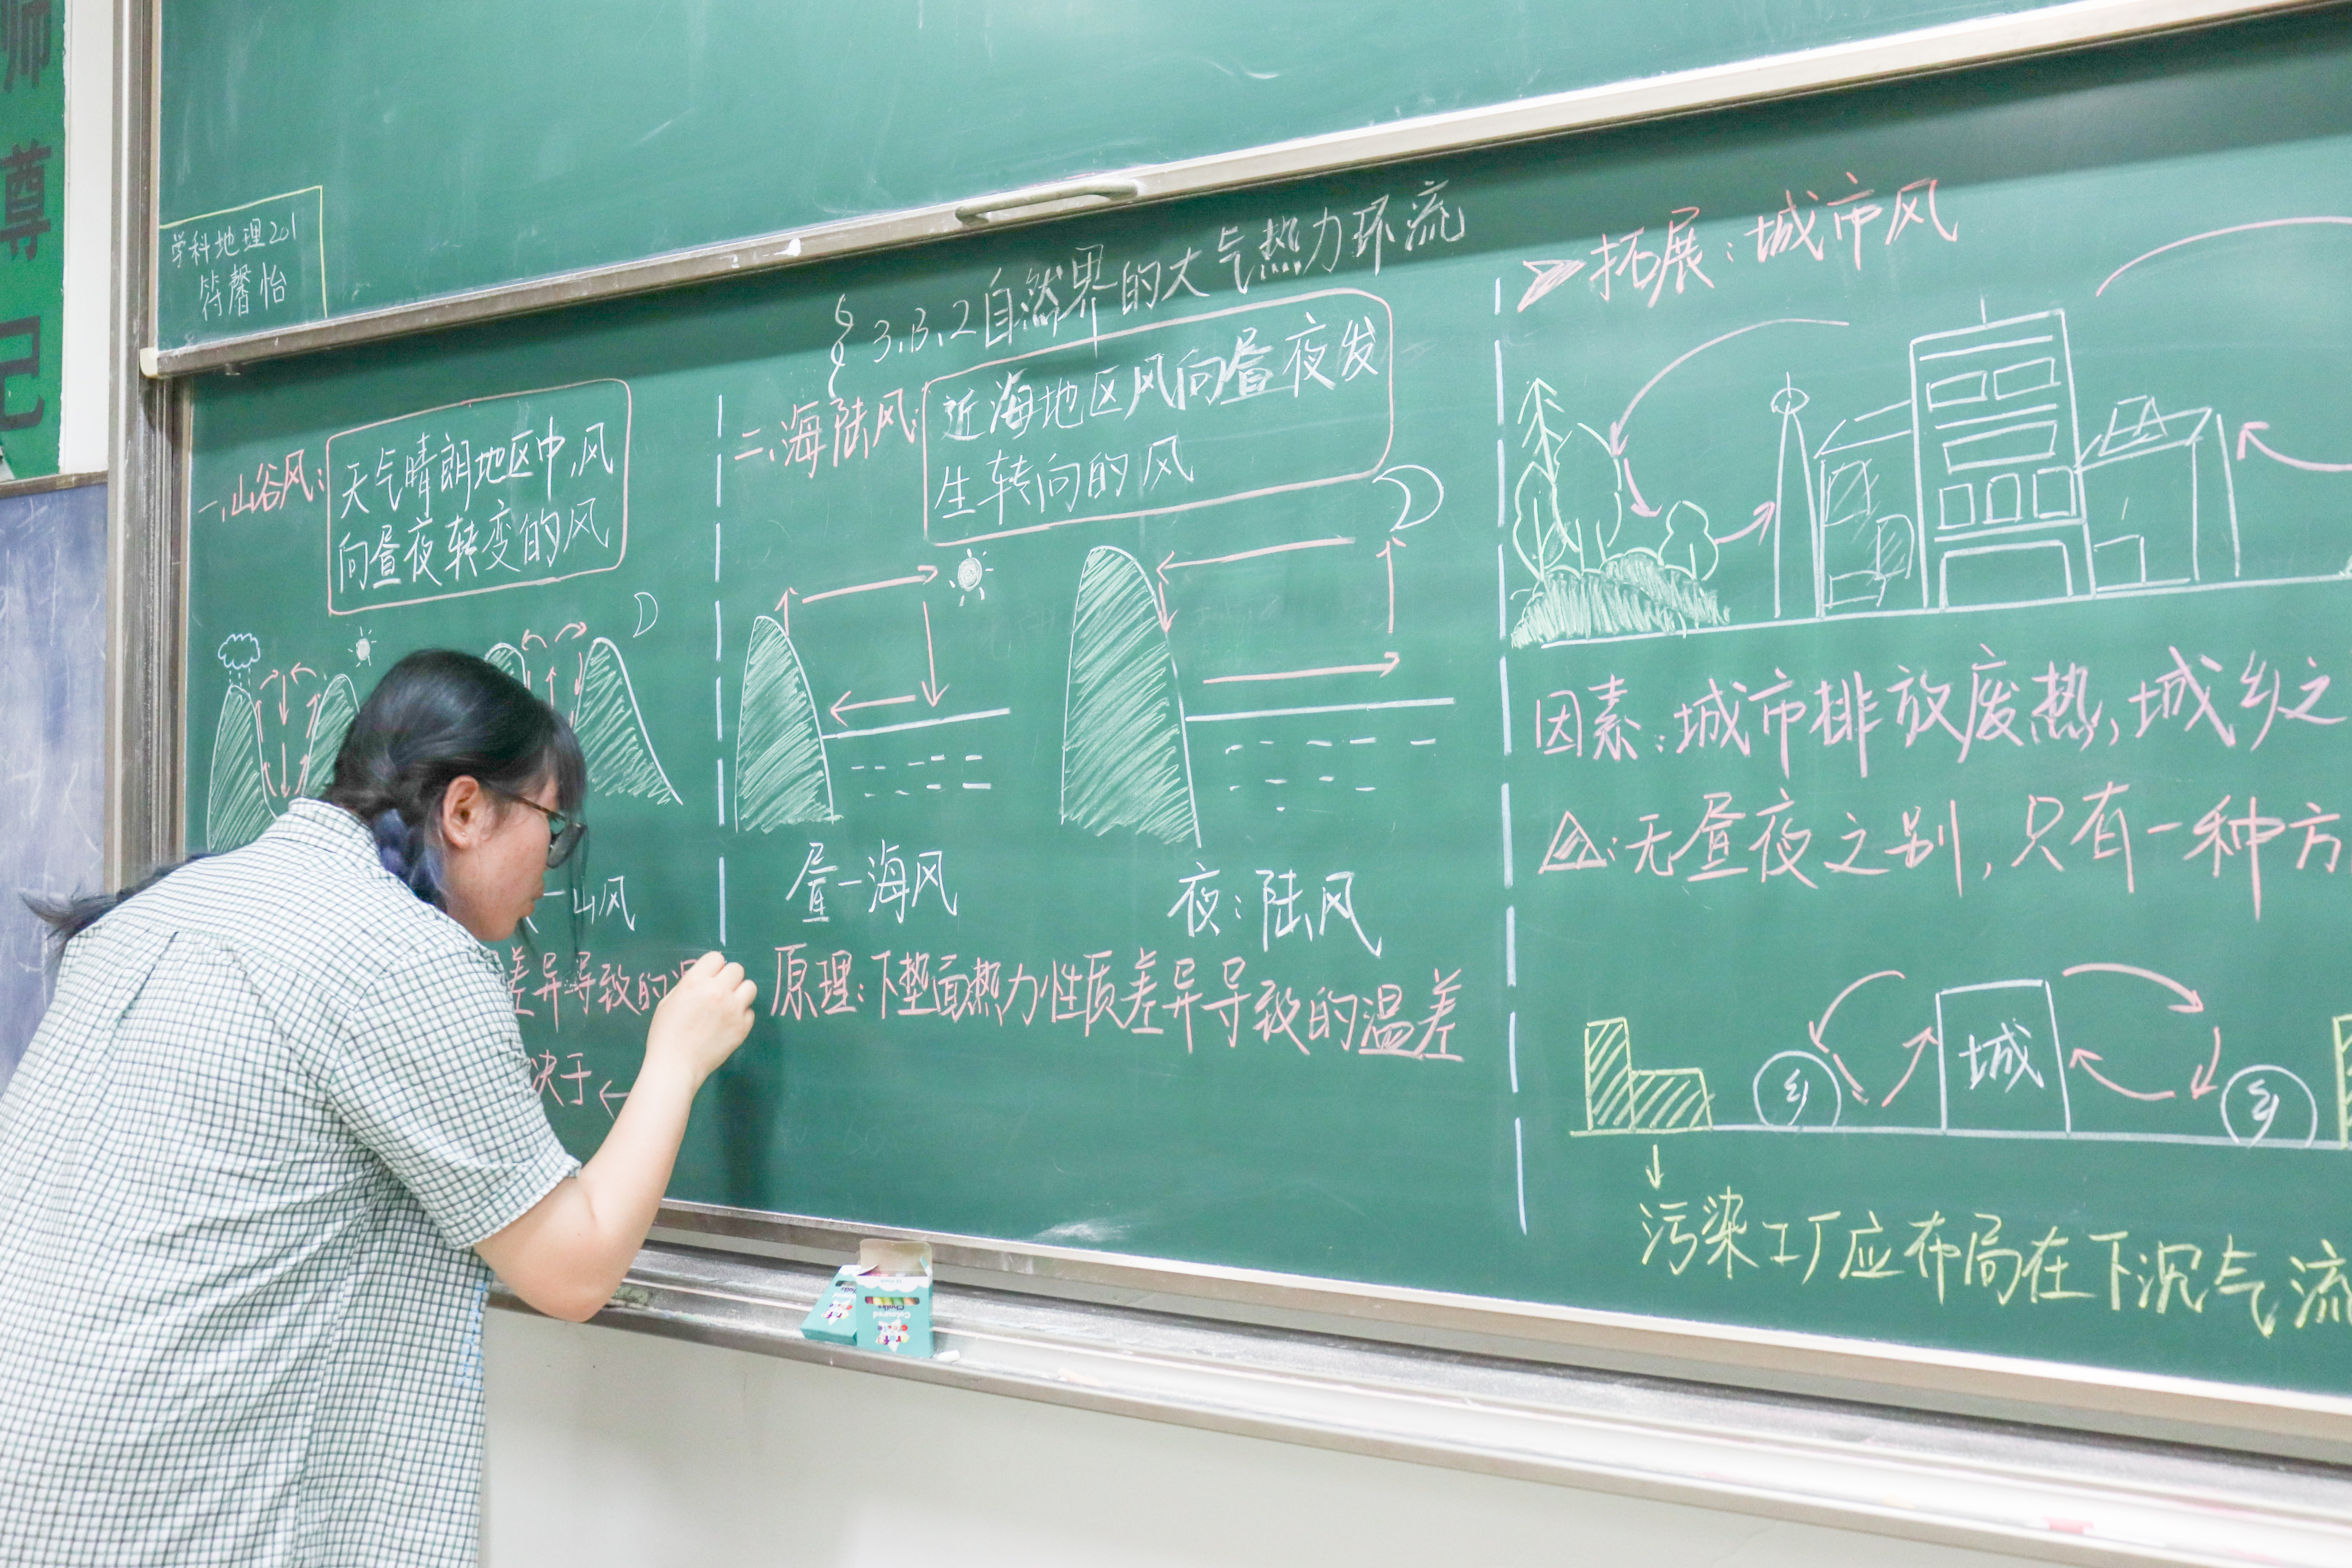 师
尊
记
学科地理201
符馨怡
§3.3.2自然界的大气热力环流
一、山谷风:
天气晴朗地区中,风
向昼夜转变的风
一山风
差异导致的温
决于←
二、海陆风:
近海地区风向昼夜发
生转向的风
昼一海风
夜:陆风
原理:下垫面热力性质差异导致的温差
拓展:城市风
因素:城市排放废热,城乡之
△:无昼夜之别,只有一种方
乡
城
乡
污染工厂应布局在下沉气流
Chalks